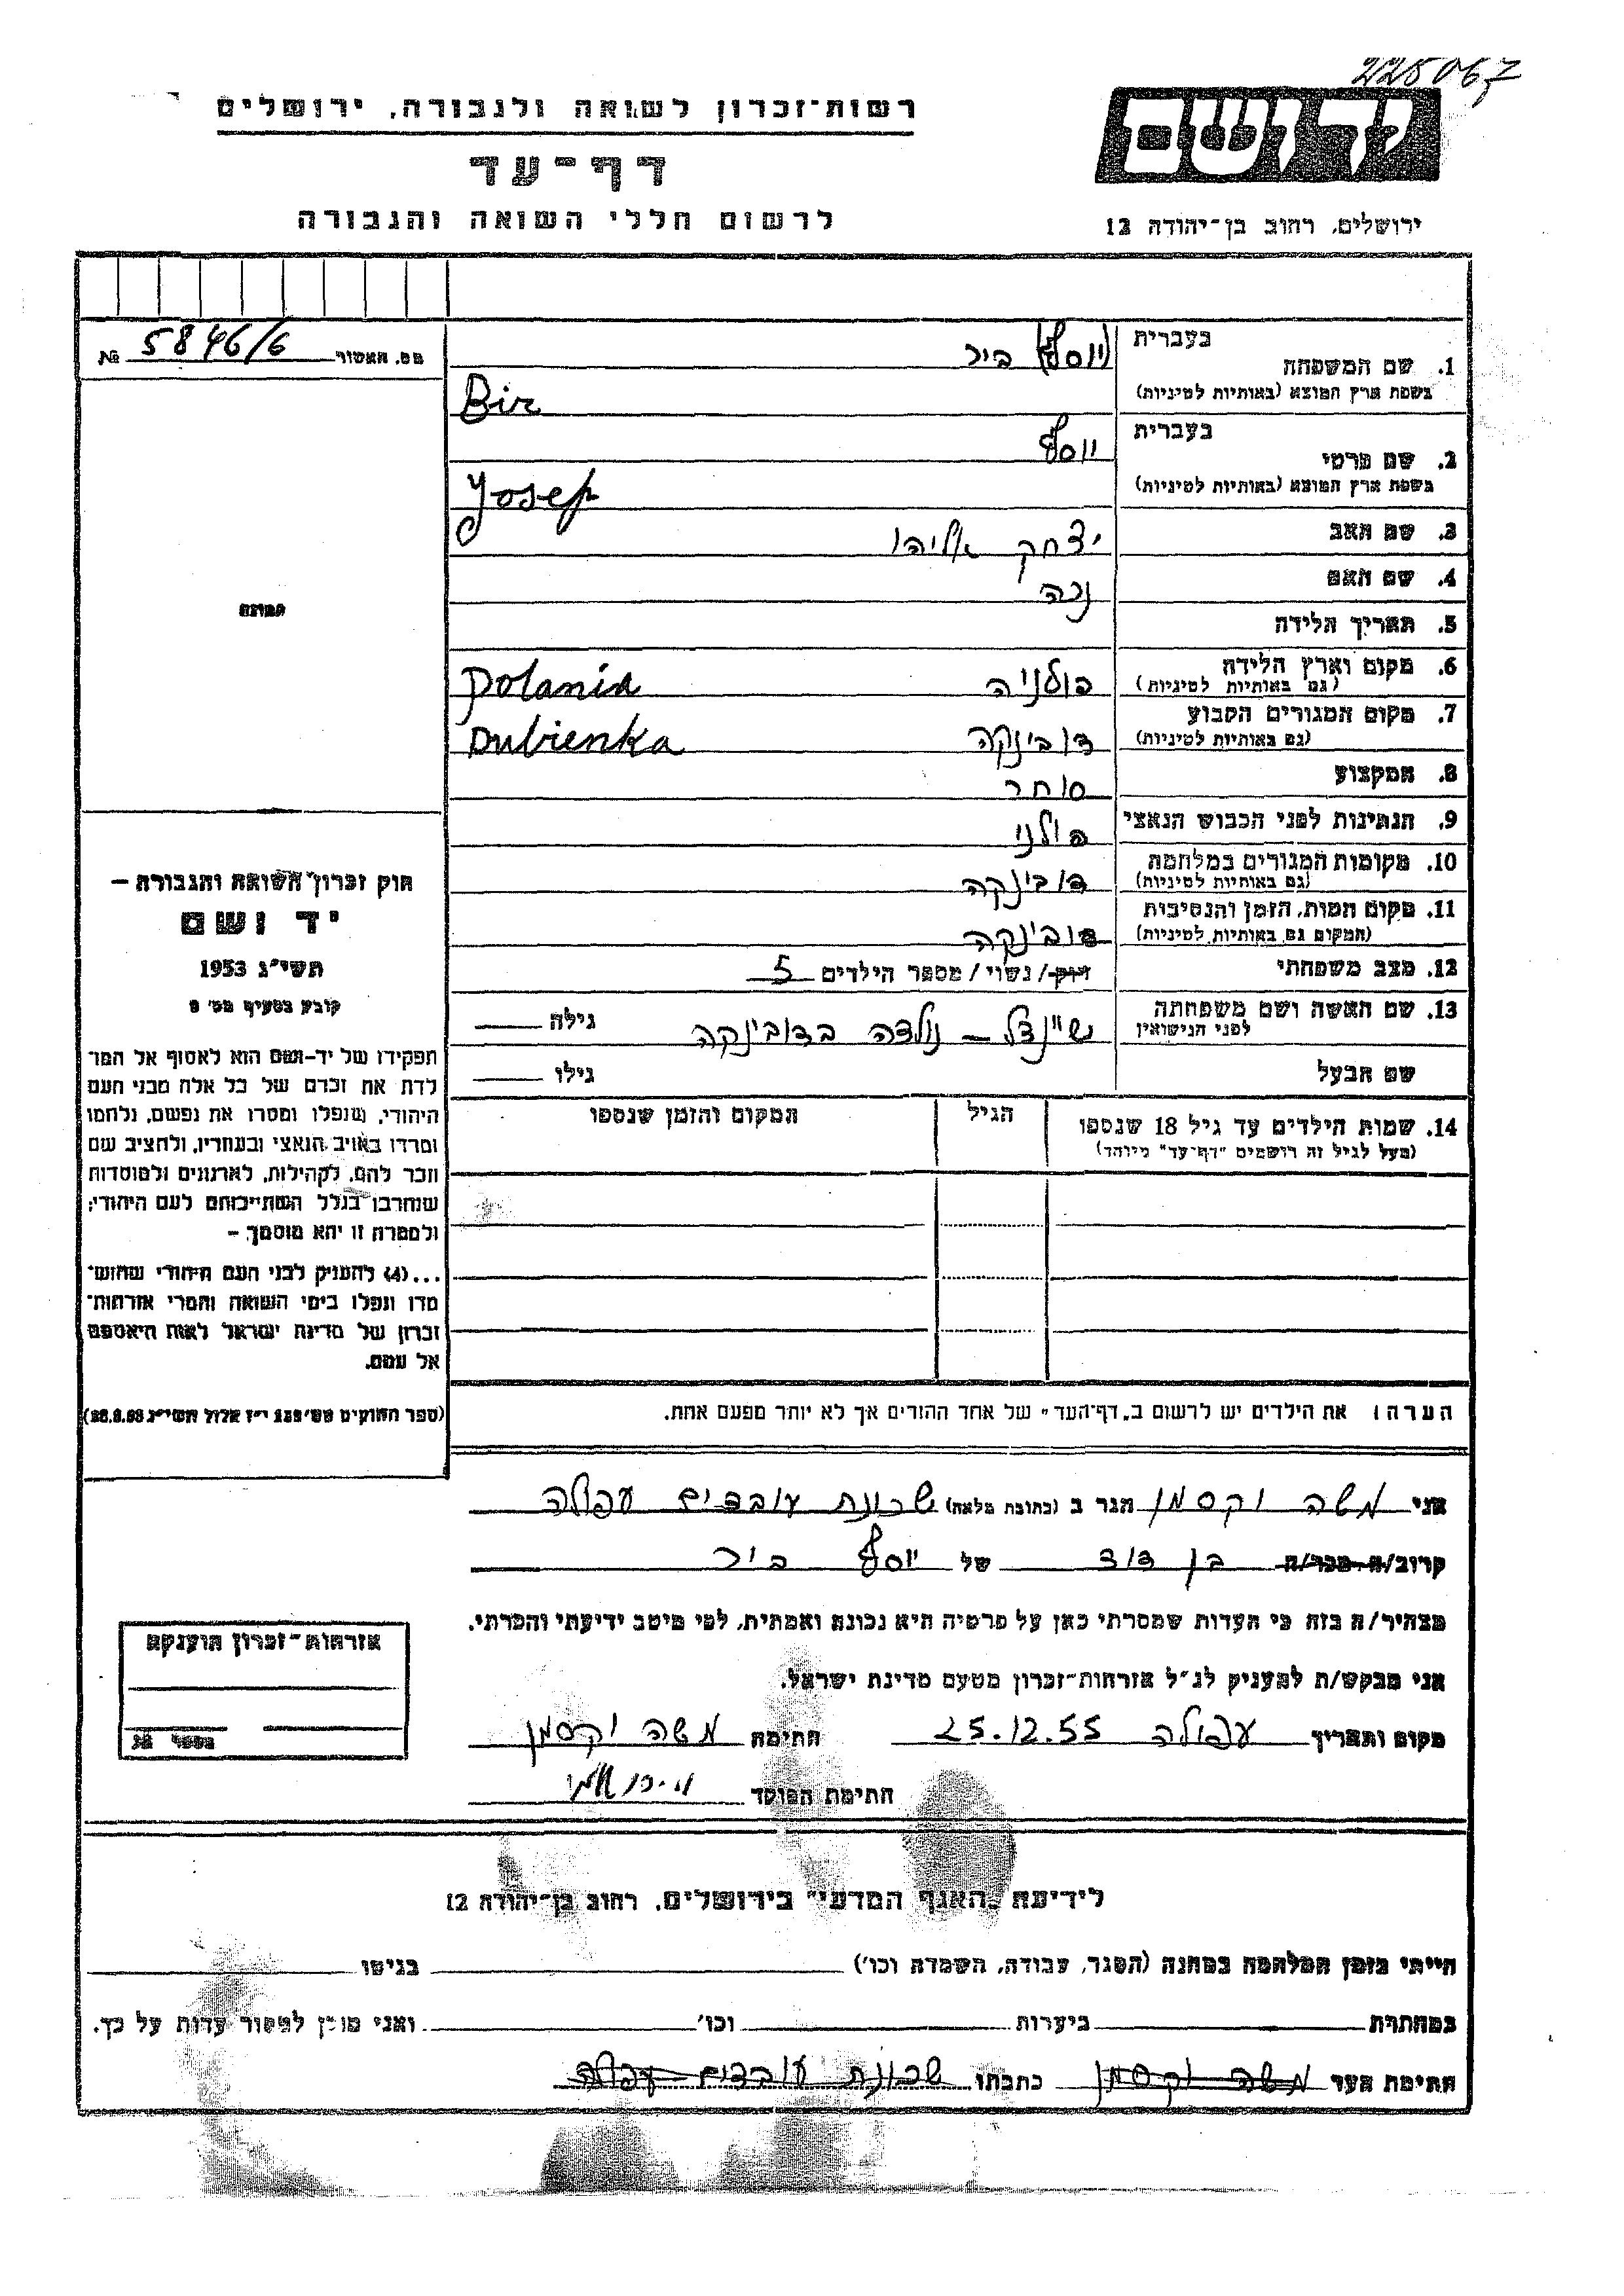 225067
רשות-זכרון לשואה ולגבורה, ירושלים
ידושם
דף-עד
לרשום חללי השואה והגבורה
ירושלים, רחוב בן-יהודה 12
מס. האשור 5846/6 №
בעברית
1. שם המשפחה (יוסף) ביר
בשפת ארץ המוצא (באותיות לטיניות) Bir
בעברית
2. שם פרטי יוסף
בשפת ארץ המוצא (באותיות לטיניות) Yosef
3. שם האב יצחק אליהו
4. שם האם
5. תאריך הלידה
6. מקום וארץ הלידה פולניה Polania
(גם באותיות לטיניות)
7. מקום המגורים הקבוע דובינקה Dubienka
(גם באותיות לטיניות)
8. המקצוע סוחר
9. הנתינות לפני הכבוש הנאצי פולני
10. מקומות המגורים במלחמה דובינקה
(גם באותיות לטיניות)
11. מקום המות, הזמן והנסיבות דובינקה
(המקום גם באותיות לטיניות)
12. מצב משפחתי רווק/ נשוי/ מספר הילדים 5
13. שם האשה ושם משפחתה שיינדל - נולדה בדובינקה גילה
לפני הנישואין
שם הבעל גילו
14. שמות הילדים עד גיל 18 שנספו הגיל המקום והזמן שנספו
(מעל לגיל זה רושמים "דף-עד" מיוחד)
תמונה
חוק זכרון השואה והגבורה –
יד ושם
תשי"ג 1953
קובע בסעיף מס' 2
תפקידו של יד-ושם הוא לאסוף אל המו־
לדת את זכרם של כל אלה מבני העם
היהודי, שנפלו ומסרו את נפשם, נלחמו
ומרדו באויב הנאצי ובעוזריו, ולהציב שם
וזכר להם, לקהילות, לארגונים ולמוסדות
שנחרבו בגלל השתייכותם לעם היהודי;
ולמטרה זו יהא מוסמך –
...(4) להעניק לבני העם היהודי שהוש־
מדו ונפלו בימי השואה והמרי אזרחות־
זכרון של מדינת ישראל לאות היאספם
אל עמם.
(ספר החוקים מס' 132 י"ז אלול תשי"ג 28.8.53)
הערה: את הילדים יש לרשום ב"דף-העד" של אחד ההורים אך לא יותר מפעם אחת.
אני משה וקסמן הגר ב (כתובת מלאה) שכונת עובדים עפולה
קרוב/ה מכר/ה בן דוד של יוסף ביר
מצהיר/ה בזה כי העדות שמסרתי כאן על פרטיה היא נכונה ואמתית, לפי מיטב ידיעתי והכרתי.
אני מבקש/ת להעניק לנ"ל אזרחות-זכרון מטעם מדינת ישראל.
מקום ותאריך עפולה 25.12.55 חתימה משה וקסמן
חתימת הפוקד
אזרחות-זכרון הוענקה
מספר
לידיעת "האגף המדעי" בירושלים, רחוב בן-יהודה 12
הייתי בזמן המלחמה במחנה (הסגר, עבודה, השמדה וכו') בגיטו
במחתרת ביערות וכו' ואני מוכן למסור עדות על כך.
חתימת העד משה וקסמן כתבתו שכונת עובדים עפולה